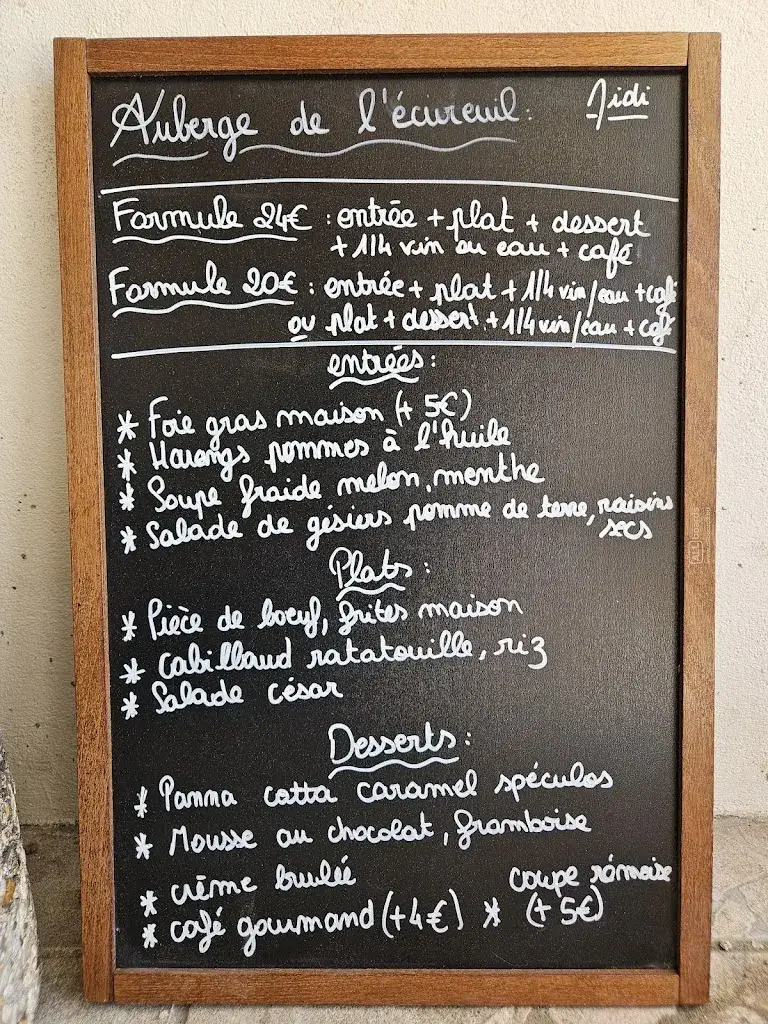 Auberge de l'écureuil: Midi
Formule 24€ : entrée + plat + dessert
+ 1/4 vin ou eau + café
Formule 20€ : entrée + plat + 1/4 vin/eau + café
ou plat + dessert + 1/4 vin/eau + café
entrées :
* Foie gras maison (+ 5€)
* Harengs pommes à l'huile
* Soupe froide melon, menthe
* Salade de gésiers pomme de terre, raisins
secs
Plats :
* Pièce de boeuf, frites maison
* Cabillaud ratatouille, riz
* Salade césar
Desserts :
* Panna cotta caramel spéculos
* Mousse au chocolat, framboise
* crème brulée
* café gourmand (+4€) * coupe rémoise
(+ 5€)